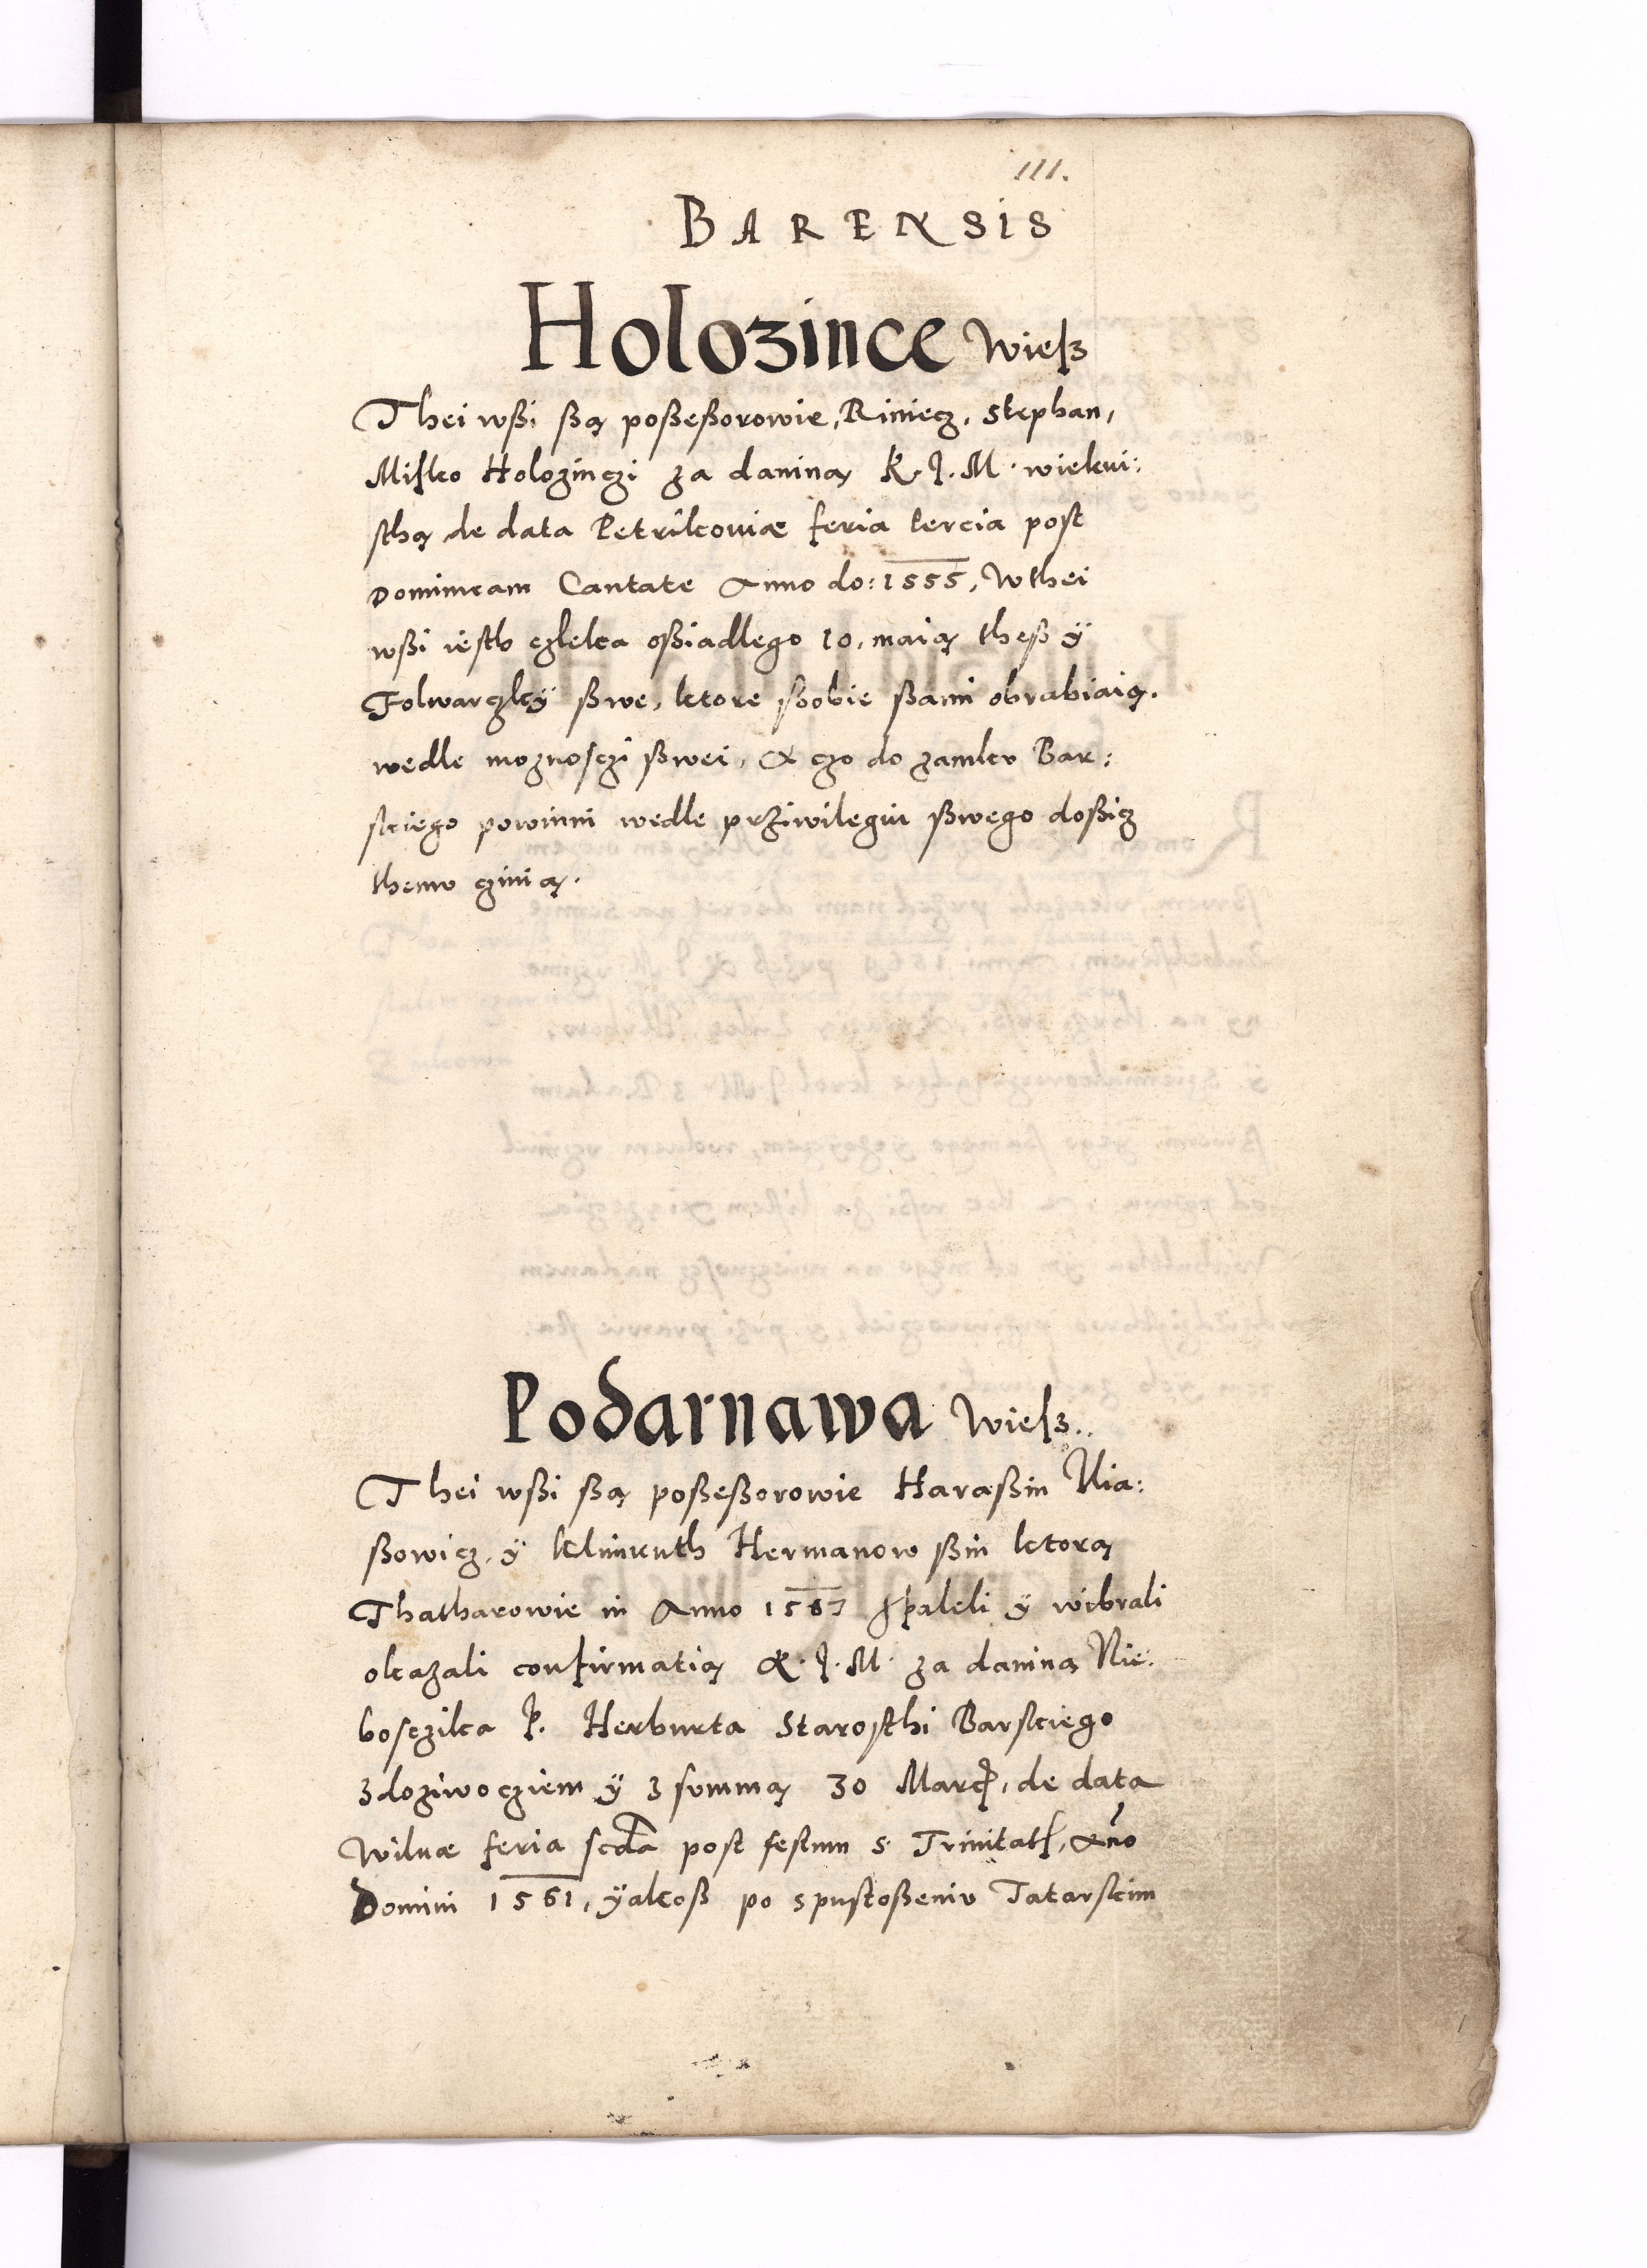 111.
BARENSIS
Holozince Wiess
Thei wßi ßą poßeßorowie, Riniecz, Stephan,
Misko Holozinczi za daniną K. J. M. wiekui:
sthą de data Petrikoviæ feria tercia post
Dominicam Cantate Anno do: 1555, Wthei
wßi iesth czleka oßiadlego 10, maią theß ÿ
Folwarczkÿ ßwe, ktore ßobie ßami obrabiaią.
wedle moznosczi ßwei, A czo do zamku Bar:
skiego powinni wedle prziwilegiu ßwego doßicz
themu czinią.
Podarnawa Wiess..
Thei wßi ßą poßeßorowie Haraßin Nia:
ßowicz, ÿ Klimunth Hermanow ßin ktorą
Thatharowie in Anno 1567 spaleli ÿ wibrali
okazali confirmatią K. J. M. za daniną Nie:
bosczika P. Herburta Starosthi Barskiego
z doziwocziem ÿ z summą 30 Marcz, de data
Wilnæ feria scda post festum S. Trinitatis, Ano
Domini 1561, ÿakoß po spustoßeniu Tatarskim